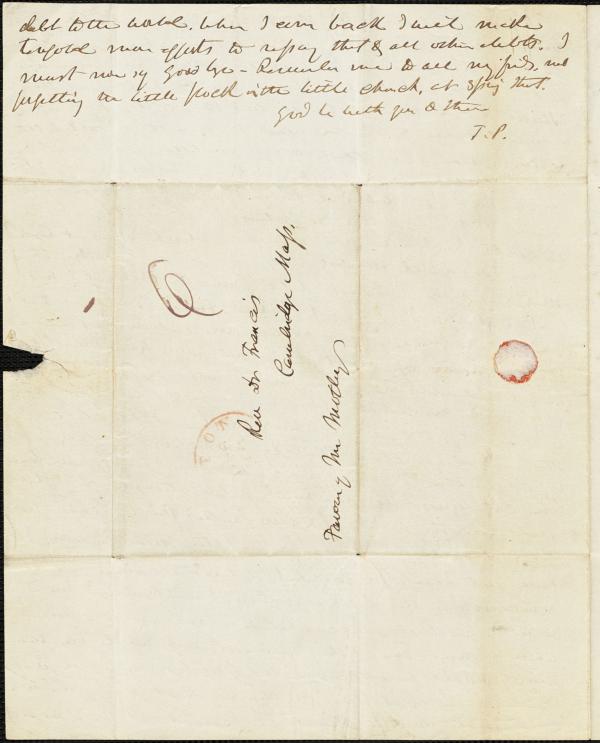 debt to the world. When I come back I will make
tenfold more efforts to repay that & all other debts. I
must now say Good bye – Remember me to all my frds, not
forgetting the little flock in the little church, at Spring Street.
God be with you & them
T. P.
6
Rev Dr Francis
Cambridge Mass.
Favor of Mr Motley